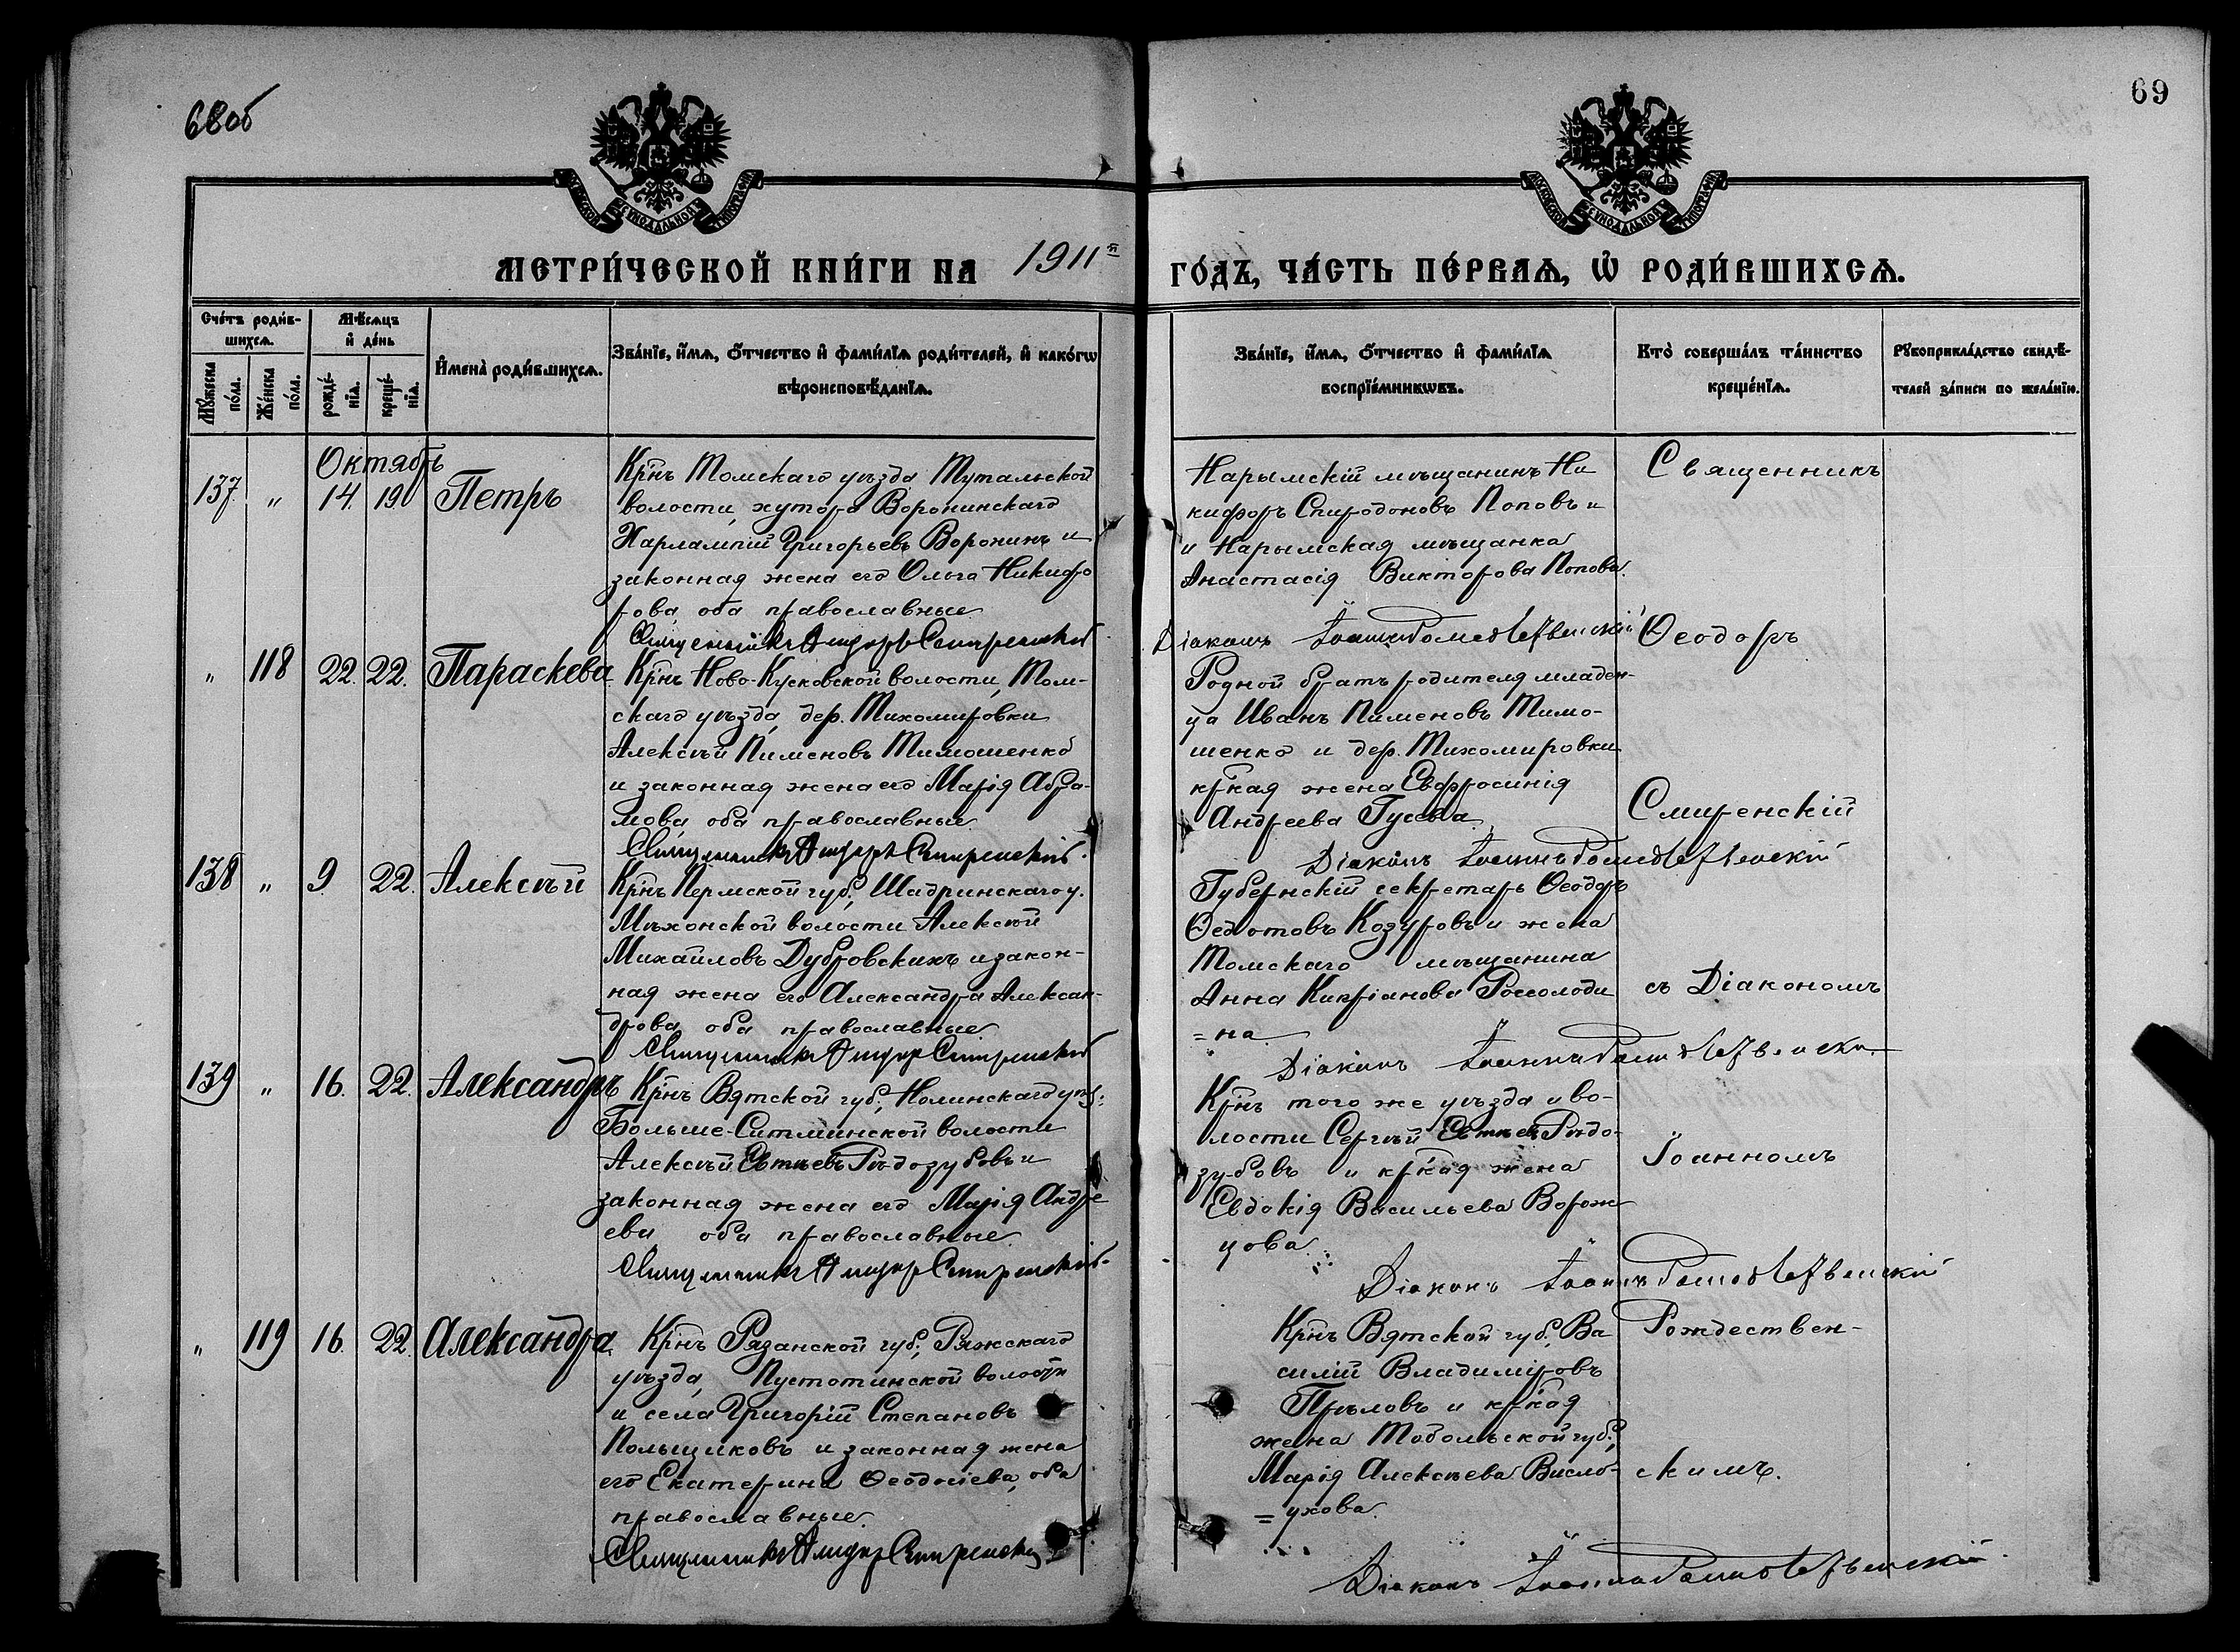 68об
69
МОСКОВСКОЙ СѴНОДАЛЬНОЙ ТИПОГРАФІИ
МОСКОВСКОЙ СѴНОДАЛЬНОЙ ТИПОГРАФІИ
МЕТРИ́ЧЕСКОЙ КНИ́ГИ НА 1911й
ГО́ДЪ, ЧА́СТЬ ПЕ́РВАѦ, Ѡ҆ РОДИ́ВШИХСѦ.
Сче́тъ роди́в-
шихсѧ.
Мꙋ́жеска по́ла.
Же́нска по́ла.
Мѣ́сѧцъ
и҆ де́нь
рожде́-
нїѧ.
креще́-
нїѧ.
И҆мена̀ роди́вшихсѧ.
Зва́нїе, и҆́мѧ, ѻ҆́тчество и҆ фами́лїѧ роди́телей, и҆ како́гѡ
вѣроисповѣ́данїѧ.
Зва́нїе, и҆́мѧ, ѻ҆́тчество и҆ фами́лїѧ
воспрїе́мникѡвъ.
Кто̀ соверша́лъ та́инство
креще́нїѧ.
Рꙋкоприкла́дство свидѣ́-
телей за́писи по жела́нїю.
Октябрь
137 " 14. 19. Петръ
Крнъ Томскаго уѣзда Тутальской
волости, хутора Воронинскаго
Харлампій Григорьевъ Воронинъ и
законная жена его Ольга Никифо
рова, оба православные
Священникъ Ѳеодоръ Смиренскій
Нарымскій мѣщанинъ Ни
кифоръ Спиридоновъ Поповъ и
и Нарымская мѣщанка
Анастасія Викторова Попова.
Діаконъ Іоаннъ Рождественскій
Священникъ
Ѳеодоръ
" 118 22. 22. Параскева
Крнъ Ново-Кусковской волости, Том-
скаго уѣзда, дер. Тихомировки
Алексѣй Пименовъ Тимошенко
и законная жена его Марія Абра-
мова, оба православные
Священникъ Ѳеодоръ Смиренскій.
Родной братъ родителя младен-
ца Иванъ Пименовъ Тимо-
шенко и дер. Тихомировки
кркая жена Евфросинія
Андреева Гусева
Діаконъ Іоаннъ Рождественскій
Смиренскій
138 " 9 22. Алексѣй
Крнъ Пермской губ., Шадринскаго у.
Мѣхонской волости Алексѣй
Михайловъ Дубровскихъ и закон-
ная жена его Александра Алексан-
дрова, оба православные
Священникъ Ѳеодоръ Смиренскій
Губернскій секретарь Ѳеодоръ
Ѳедотовъ Козыровъ и жена
Томскаго мѣщанина
Анна Кипріанова Россолоди
=на
Діаконъ Іоаннъ Рождественскій
съ Діакономъ
139 " 16. 22. Александръ
Крнъ Вятской губ., Нолинскаго уѣз:
Больше-Ситминской волости
Алексѣй Евтѣевъ Рѣдозубовъ и
законная жена его Марія Андре
ева оба православные
Священникъ Ѳеодоръ Смиренскій.
Крнъ того же уѣзда и во-
лости Сергѣй Евтѣевъ Рѣдо-
зубовъ и кркая жена
Евдокія Васильева Ворож
цова.
Діаконъ Іоаннъ Рождественскій
Іоанномъ
" 119 16. 22. Александра.
Крнъ Рязанской губ., Ряжскаго
уѣзда, Пустотинской волости
и села Григорій Степановъ
Польщиковъ и законная жена
его Екатерина Ѳеодосіева, оба
православные.
Священникъ Ѳеодоръ Смиренскій
Крнъ Вятской губ., Ва
силій Владиміровъ
Прѣловъ и кркая
жена Тобольской губ.,
Марія Алексѣева Висло-
=ухова.
Діаконъ Іоаннъ Рождественскій.
Рождествен-
скимъ.